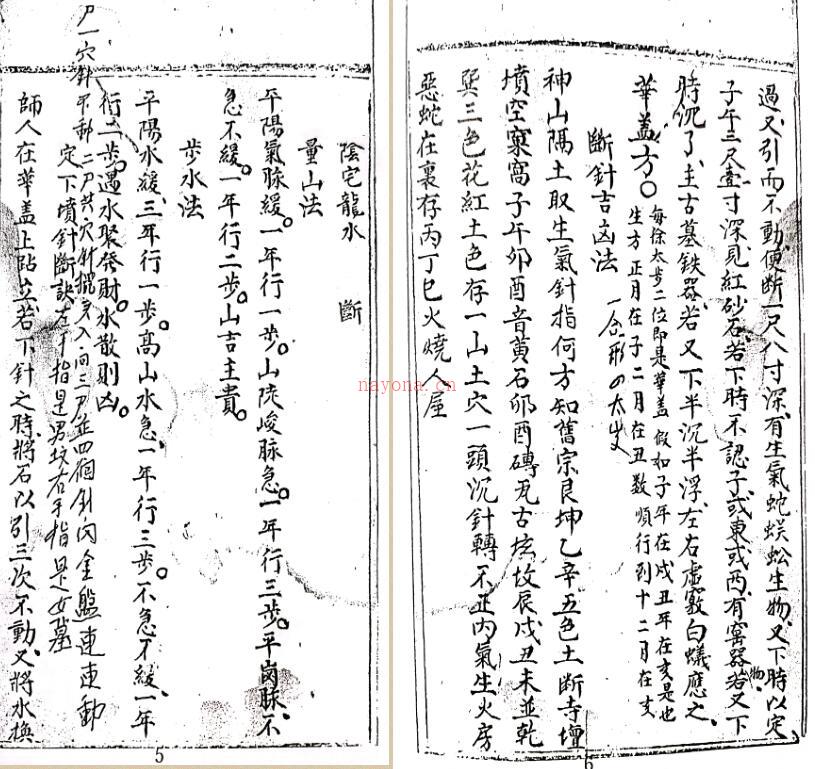 陰宅龍水 斷
量山法
平陽氣脉緩。一年行一步。山陡峻脉急。一年行三步。平崗脉、不
急不緩。一年行二步。山吉主貴。
步水法
平陽水緩、三年行一步。高山水急、一年行三步。不急不緩、一年
行二步。遇水聚發財。水散則凶。
定下墳針斷訣左手指是男坟右手指是女墓
師人在華盖上跕立若下針之時、將石以引三次不動、又將水換
尸一穴針不動二尸共穴針擺
5
過又引而不動便斷一尺八寸深、有生氣蛇蜈蚣生物、又下時以定、
子午三尺壹寸深、見紅砂石、若下時不認子、或東或西、有窰器若又下
物、
時沉了、主古墓鉄器、若又下半沉半浮、左右虛竅白蟻應之、
華盖方〇
每徐太步二位即是華盖 假如子年在戍丑年在亥是也
生方 正月在子二月在丑数順行到十二月在亥
斷針吉凶法
神山隅土取生氣針指何方知舊宗艮坤乙辛五色土斷寺壇
墳空窠窩子午卯酉音黄石卯酉磚瓦古坟故辰戌丑未並乾
巽三色花紅土色存一山土穴一頭沉針轉不正内氣生火房
惡蛇在裏存丙丁巳火燒人屋
6
nayona.cn